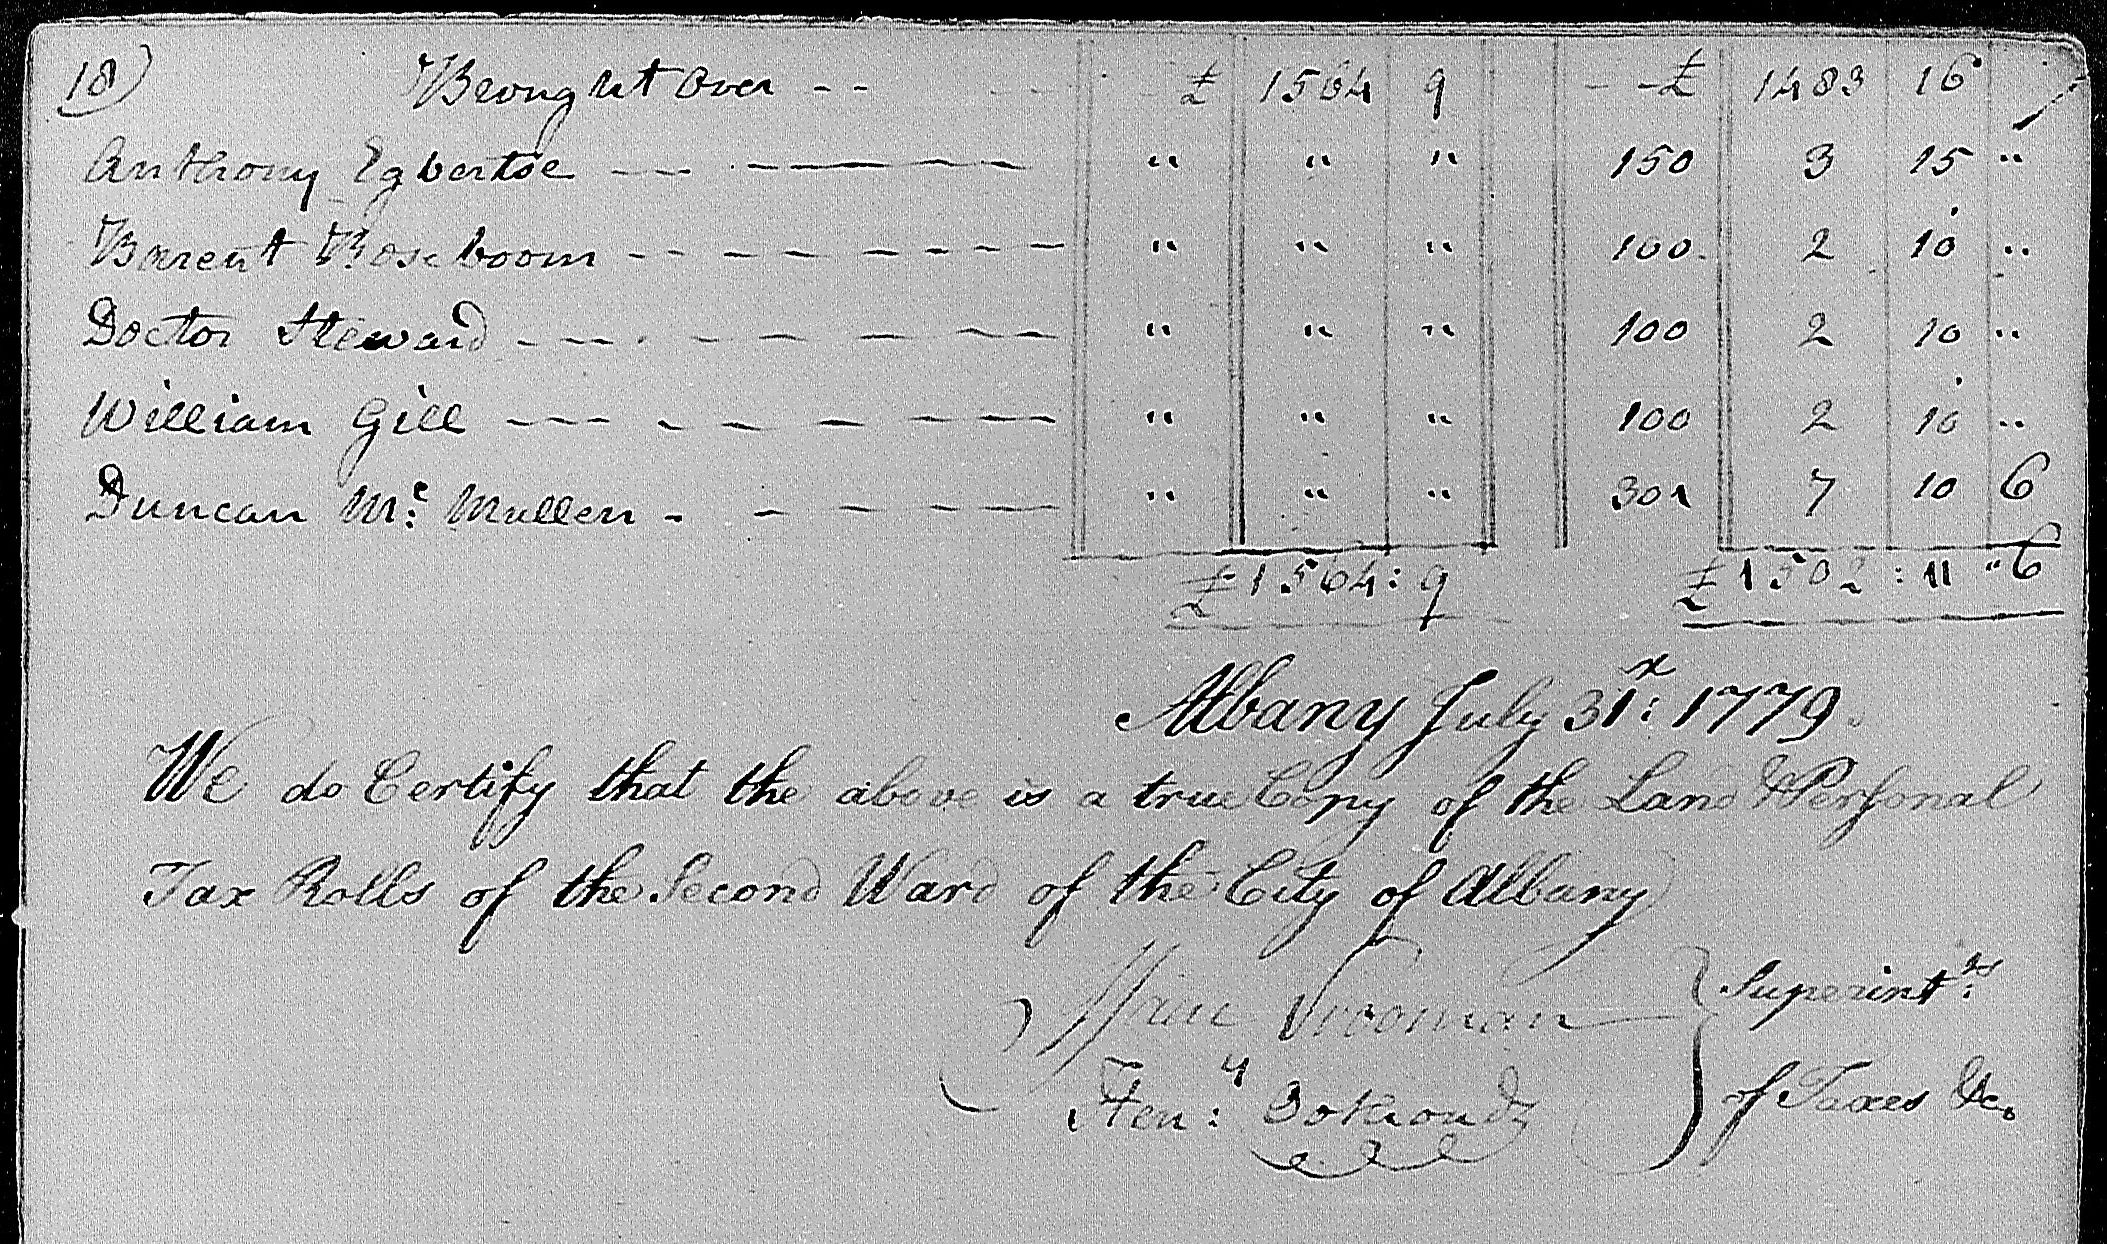 18) Brought Over - - £ 1564 9 - - £ 1483 16
Anthony Egbertse - - - " " " 150 3 15 "
Barent Roseboom - - - " " " 100 2 10 "
Doctor Steward - - - " " " 100 2 10 "
William Gill - - - " " " 100 2 10 "
Duncan Mc: Mullen - - - " " " 301 7 10 6
£ 1564 : 9 £ 1502 : 11 " 6
Albany July 31st: 1779.
We do Certify that the above is a true Copy of the Land & Personal
Tax Rolls of the Second Ward of the City of Albany
Isaac Vrooman Superintds:
Heny: of Taxes &c.